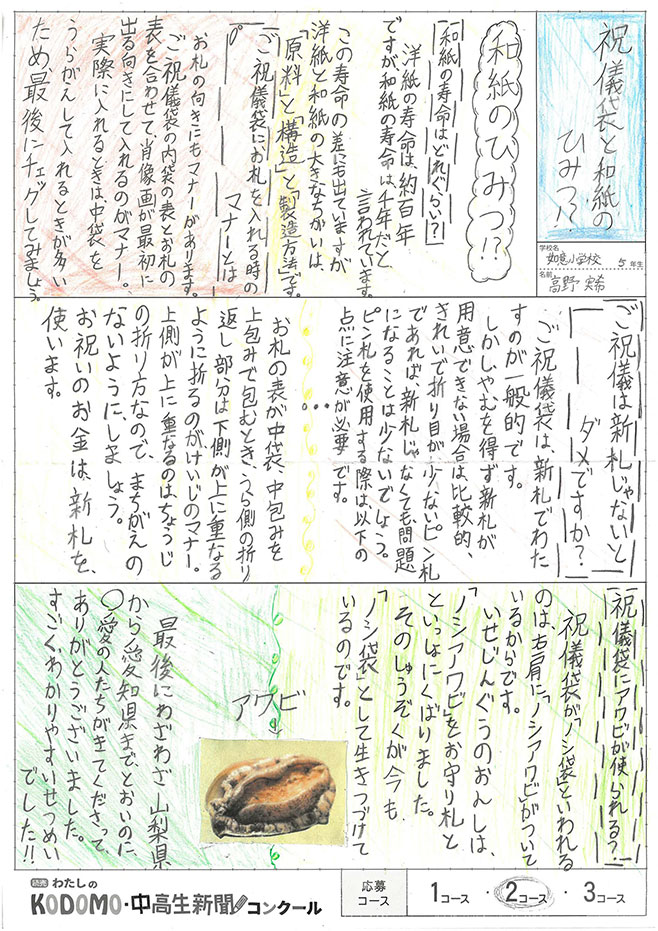 祝儀袋と和紙の
ひみつ!?
学校名
如意小学校 5年生
名前
高野 実希
和紙のひみつ!?
和紙の寿命はどれぐらい?
洋紙の寿命は、約百年
ですが和紙の寿命は、千年だと
言われています。
この寿命の差にも出ていますが
洋紙と和紙の大きなちがいは、
「原料」と「構造」と「製造方法」です。
ご祝儀袋にお札を入れる時の
マナーとは
お札の向きにもマナーがあります。
ご祝儀袋の内袋の表とお札の
表を合わせて、肖像画が最初に
出る向きにして入れるのがマナー。
実際に入れるときは中袋を
うらがえして入れるときが多い
ため最後にチェックしてみましょう。
ご祝儀は新札じゃないと
ダメですか?
ご祝儀袋は、新札でわた
すのが一般的です。
しかしやむを得ず新札が
用意できない場合は、比較的、
きれいで折り目が少ないピン札
であれば、新札じゃなくても、問題
になることは少ないでしょう。
ピン札を使用する際は、以下の
点に注意が必要です。
・・・
お札の表が中袋、中包みを
上包みで包むとき、うら側の折り
返し部分は下側が上に重なる
ように折るのがけいじのマナー。
上側が上に重なるのは、ちょうじ
の折り方なので、まちがえの
ないように、しましょう。
お祝いのお金は、新札を、
使います。
祝儀袋にアワビが使られる?
祝儀袋が「ノシ袋」といわれる
のは、右肩に「ノシアワビ」がついて
いるからです。
いせじんぐうのおんしは、
「ノシアワビ」をお守り札と
といっしょにくばりました。
そのしゅうぞくが今も
「ノシ袋」として生きつづけて
いるのです。
アワビ
最後にわざわざ 山梨県
から愛知県までとおいのに、
○愛の人たちがきてくださって
ありがとうございました。
すごくわかりやすいせつめい
でした!!
読売 わたしの
KODOMO・中高生新聞コンクール
応募
コース
1コース ・ 2コース ・ 3コース